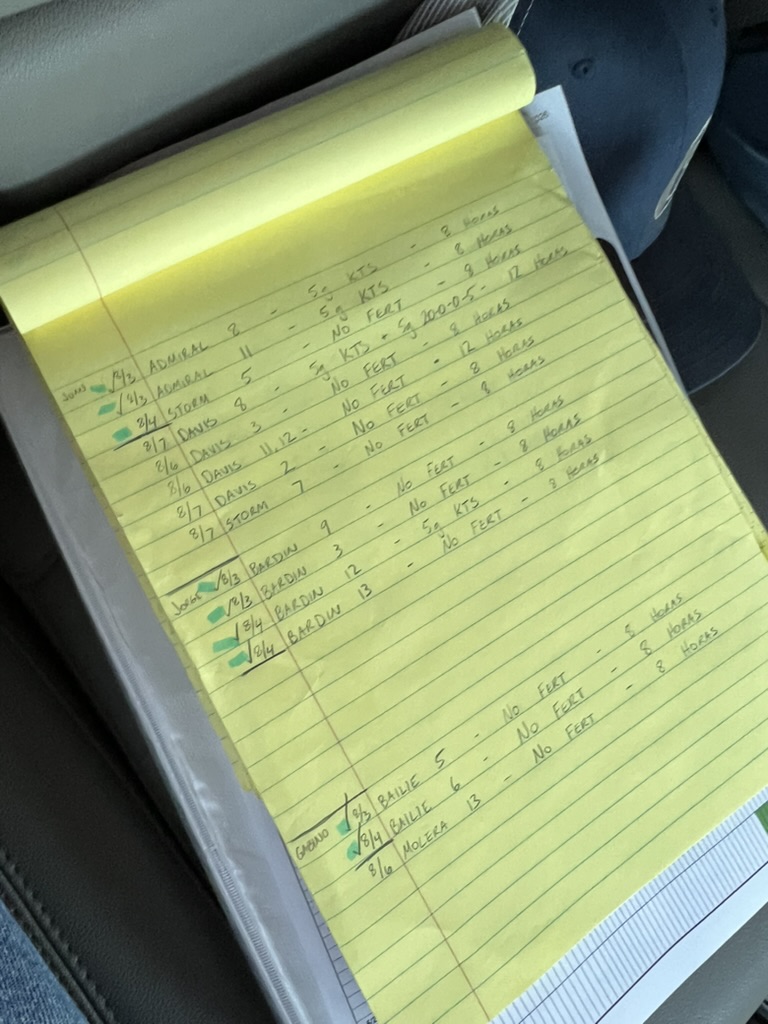 √8/3 ADMIRAL 8 - 5g KTS - 8 HORAS
√8/3 ADMIRAL 11 - 5g KTS - 8 HORAS
8/4 STORM 5 - NO FERT - 8 HORAS
8/7 DAVIS 8 - 5g KTS + 5g 20-0-0-5 - 12 HORAS
8/6 DAVIS 3 - NO FERT - 8 HORAS
8/6 DAVIS 11,12 - NO FERT - 12 HORAS
8/7 DAVIS 2 - NO FERT - 8 HORAS
8/7 STORM 7 - NO FERT - 8 HORAS
JORGE √8/3 BARDIN 9 - NO FERT - 8 HORAS
√8/3 BARDIN 3 - NO FERT - 8 HORAS
√8/4 BARDIN 12 - 5g KTS - 8 HORAS
√8/4 BARDIN 13 - NO FERT - 8 HORAS
GABINO √8/3 BAILIE 5 - NO FERT - 8 HORAS
√8/4 BAILIE 6 - NO FERT - 8 HORAS
8/6 MOLERA 13 - NO FERT - 8 HORAS